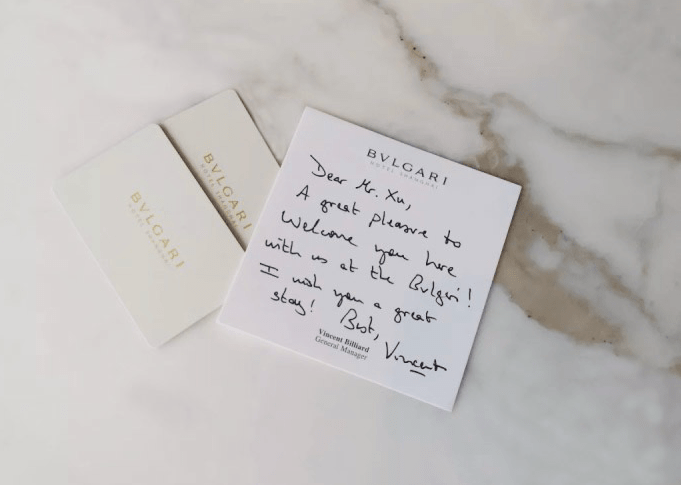 BVLGARI
HOTEL SHANGHAI
BVLGARI
HOTEL SHANGHAI
BVLGARI
HOTEL SHANGHAI
Dear Mr. Xu,
A great pleasure to
Welcome you here
with us at the Bvlgari!
I wish you a great
stay! Best,
Vincent
Vincent Billiard
General Manager